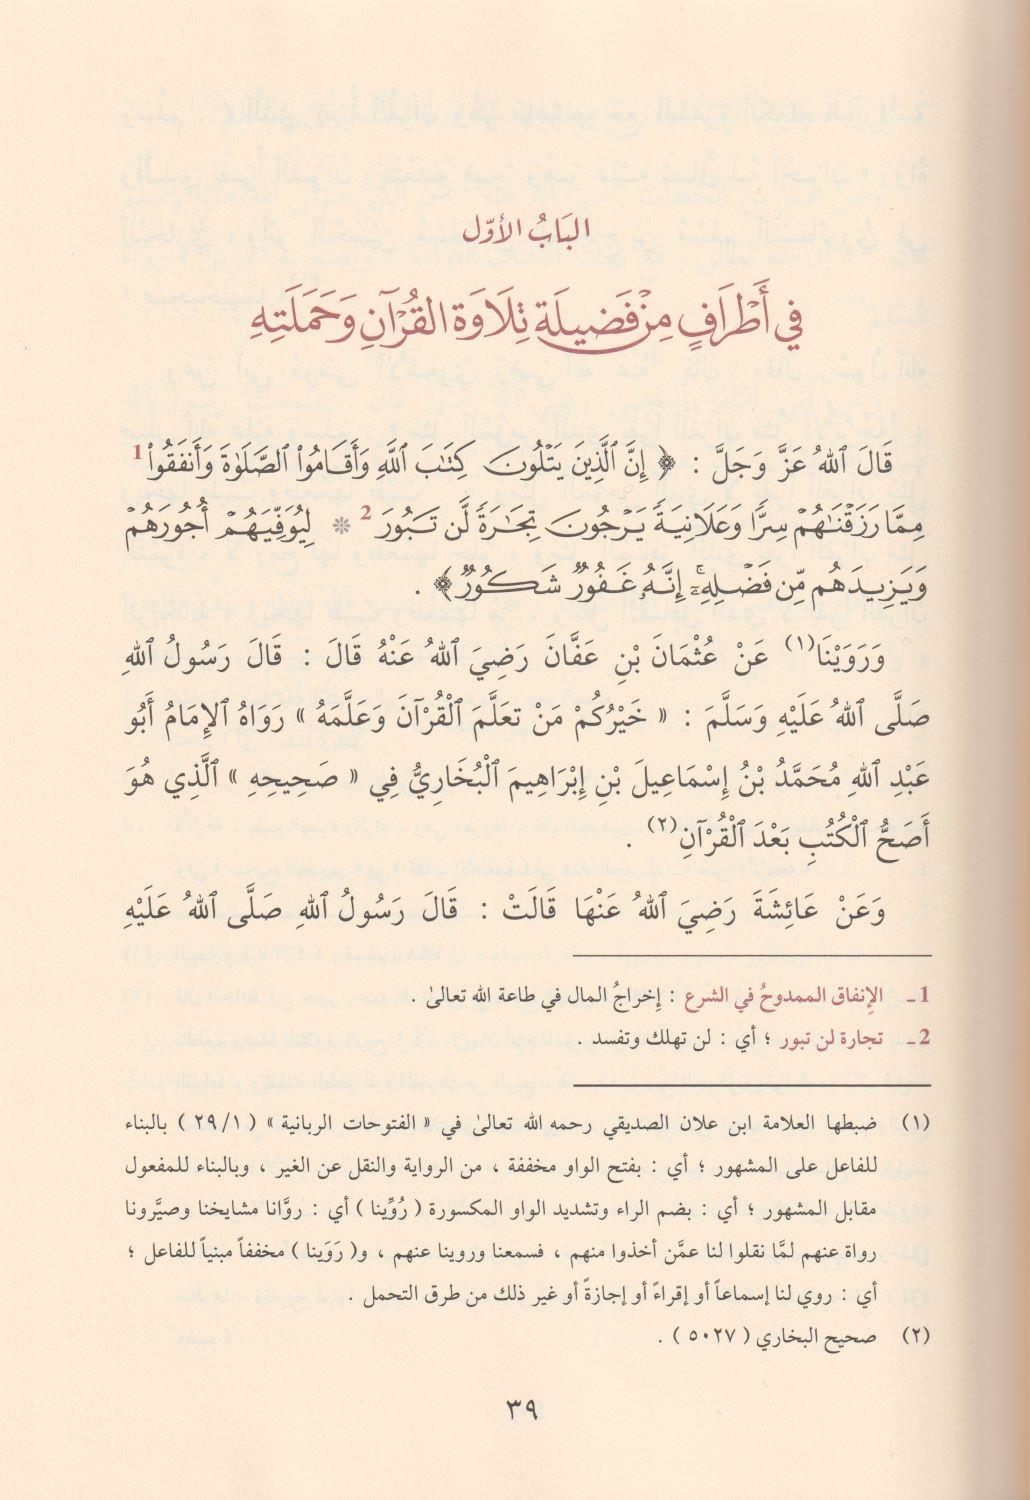 البَابُ الأوّل
في أَطْرَافٍ مِنْ فَضِيلَةِ تِلَاوَةِ القُرْآنِ وَحَمَلَتِهِ
قَالَ ٱللهُ عَزَّ وَجَلَّ : ﴿ إِنَّ ٱلَّذِينَ يَتْلُونَ كِتَٰبَ ٱللَّهِ وَأَقَامُوا۟ ٱلصَّلَوٰةَ وَأَنفَقُوا۟ 1
مِمَّا رَزَقْنَٰهُمْ سِرًّا وَعَلَانِيَةً يَرْجُونَ تِجَٰرَةً لَّن تَبُورَ 2 * لِيُوَفِّيَهُمْ أُجُورَهُمْ
وَيَزِيدَهُم مِّن فَضْلِهِۦٓ ۚ إِنَّهُۥ غَفُورٌ شَكُورٌ ﴾ .
وَرَوَيْنَا(١) عَنْ عُثْمَانَ بْنِ عَفَّانَ رَضِيَ ٱللهُ عَنْهُ قَالَ : قَالَ رَسُولُ ٱللهِ
صَلَّى ٱللهُ عَلَيْهِ وَسَلَّمَ : « خَيْرُكُمْ مَنْ تَعَلَّمَ ٱلْقُرْآنَ وَعَلَّمَهُ » رَوَاهُ ٱلإِمَامُ أَبُو
عَبْدِ ٱللهِ مُحَمَّدُ بْنُ إِسْمَاعِيلَ بْنِ إِبْرَاهِيمَ ٱلْبُخَارِيُّ فِي « صَحِيحِهِ » ٱلَّذِي هُوَ
أَصَحُّ ٱلْكُتُبِ بَعْدَ ٱلْقُرْآنِ(٢) .
وَعَنْ عَائِشَةَ رَضِيَ ٱللهُ عَنْهَا قَالَتْ : قَالَ رَسُولُ ٱللهِ صَلَّى ٱللهُ عَلَيْهِ
1 ـ الإنفاق الممدوحُ في الشرع : إخراجُ المال في طاعة الله تعالىٰ .
2 ـ تجارة لن تبور ؛ أي : لن تهلك وتفسد .
(١) ضبطها العلامة ابن علان الصديقي رحمه الله تعالىٰ في « الفتوحات الربانية » ( ٢٩/١ ) بالبناء
للفاعل على المشهور ؛ أي : بفتح الواو مخففة ، من الرواية والنقل عن الغير ، وبالبناء للمفعول
مقابل المشهور ؛ أي : بضم الراء وتشديد الواو المكسورة ( رُوِّينا ) أي : روَّانا مشايخنا وصيَّرونا
رواة عنهم لمَّا نقلوا لنا عمَّن أخذوا منهم ، فسمعنا وروينا عنهم ، و( رَوَينا ) مخففاً مبنياً للفاعل ؛
أي : روي لنا إسماعاً أو إقراءً أو إجازةً أو غير ذلك من طرق التحمل .
(٢) صحيح البخاري ( ٥٠٢٧ ) .
٣٩